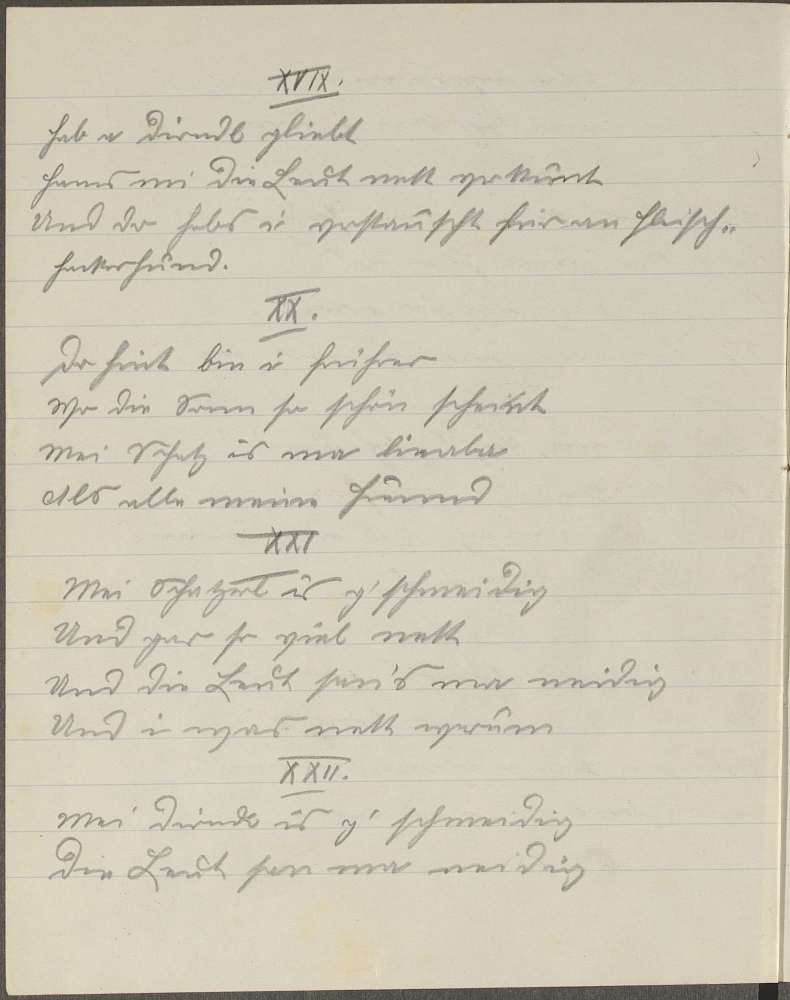 XVIX.
Hab a Dirndl gliebt
Hams mi die Leut nett
Und do habs i vrtauscht für an Fleisch=
hackerhund.
XX.
Do hint bin i
Wo die Sonn so schön scheint
Mei Schatz is ma liaba
Als alle meine Freund
XXI
Mei Schatzerl is g'schmeidig
Und gar so viel nett
Und die Leut san's ma neidig
Und i was nett warum
XXII.
Mei Dirndl is g'schmeidig
Die Leut san ma neidig